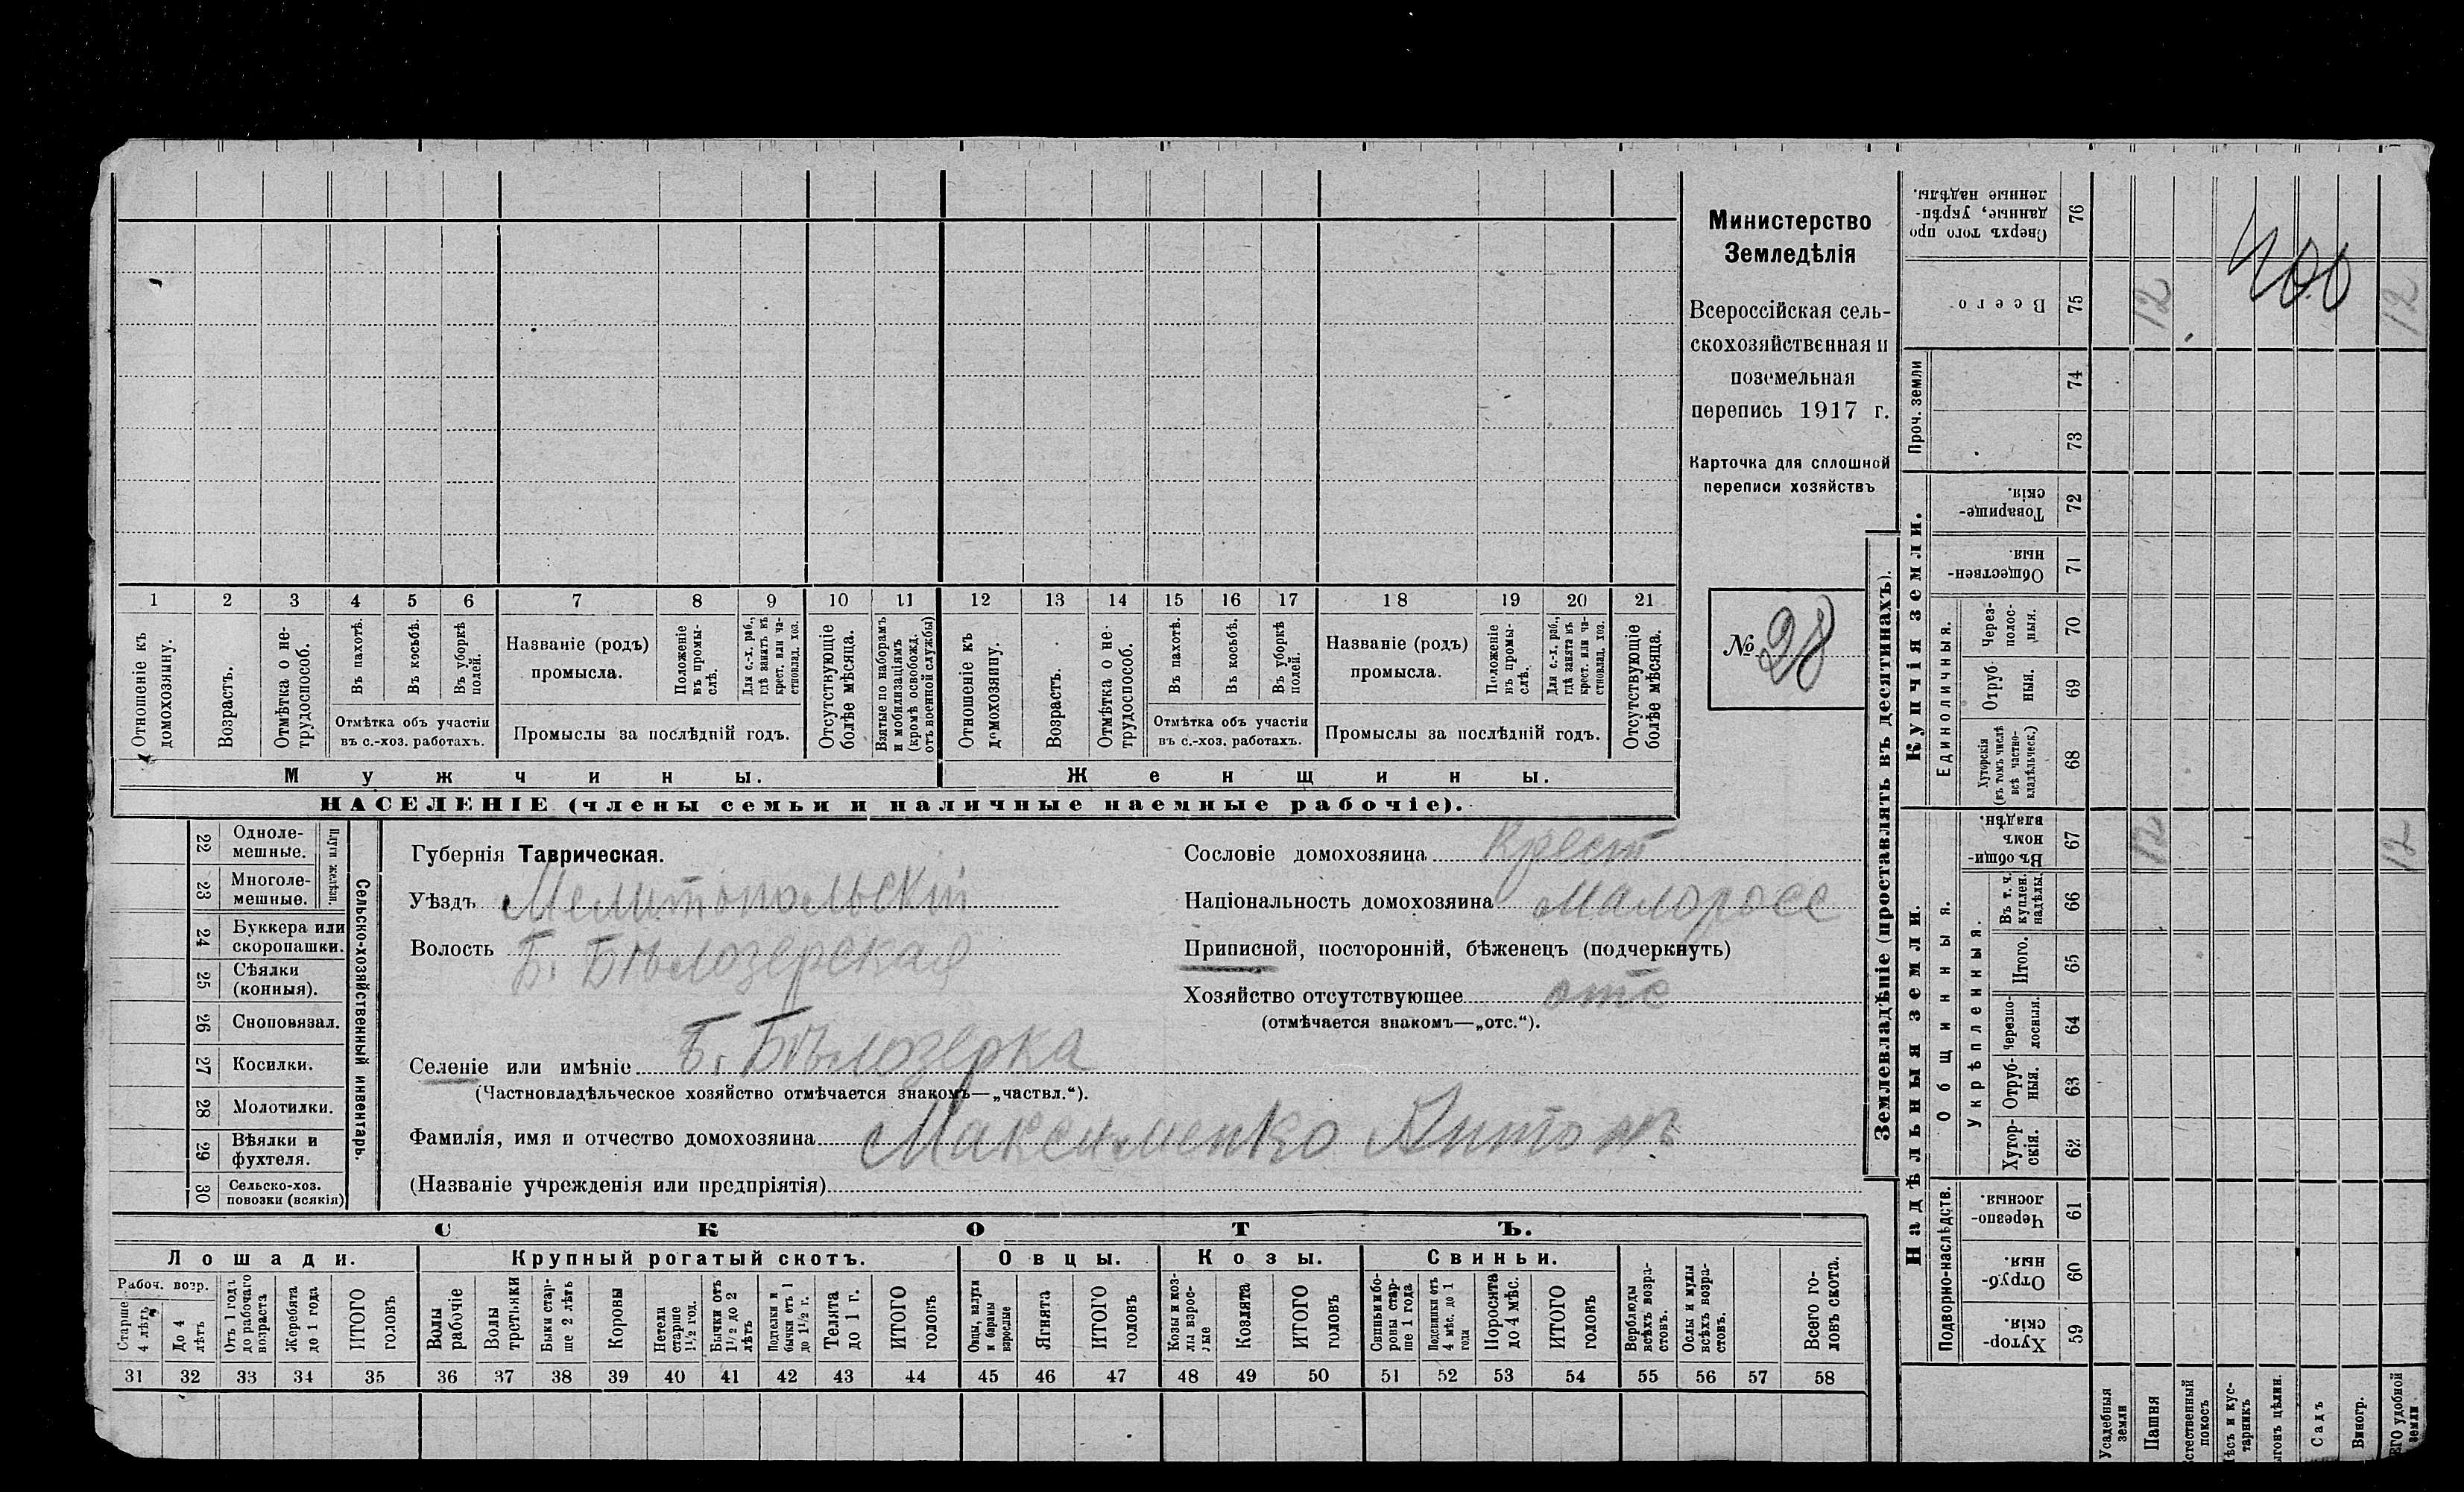 Министерство
Земледѣлія
Всероссійская сель-
скохозяйственная и
поземельная
перепись 1917 г.
Карточка для сплошной
переписи хозяйствъ
№ 28
1 2 3 4 5 6 7 8 9 10 11 12 13 14 15 16 17 18 19 20 21
Отношеніе къ домохозяину.
Возрастъ.
Отмѣтка о не-трудоспособ.
Въ пахотѣ.
Въ косьбѣ.
Въ уборкѣ полей.
Отмѣтка объ участіи
въ с.-хоз. работахъ.
Названіе (родъ)
промысла.
Положеніе въ промы-слѣ.
Для с.-х. раб., гдѣ занятъ въ крест. или ча-стновлад. хоз.
Промыслы за послѣдній годъ.
Отсутствующіе болѣе мѣсяца.
Взятые по наборамъ и мобилизаціямъ (кромѣ освобожд. отъ военной службы)
Отношеніе къ домохозяину.
Возрастъ.
Отмѣтка о не-трудоспособ.
Въ пахотѣ.
Въ косьбѣ.
Въ уборкѣ полей.
Отмѣтка объ участіи
въ с.-хоз. работахъ.
Названіе (родъ)
промысла.
Положеніе въ промы-слѣ.
Для с.-х. раб., гдѣ занята въ крест. или ча-стновлад. хоз.
Промыслы за послѣдній годъ.
Отсутствующіе болѣе мѣсяца.
Мужчины. Женщины.
НАСЕЛЕНІЕ (члены семьи и наличные наемные рабочіе).
Сельско-хозяйственный инвентарь.
Плуги желѣзн.
22 Одноле-мешные.
23 Многоле-мешные.
24 Буккера или скоропашки.
25 Сѣялки (конныя).
26 Сноповязал.
27 Косилки.
28 Молотилки.
29 Вѣялки и фухтеля.
30 Сельско-хоз. повозки (всякія)
Губернія Таврическая.
Уѣздъ Мелитопольскій
Волость Б. Бѣлозерская
Селеніе или имѣніе Б. Бѣлозерка
(Частновладѣльческое хозяйство отмѣчается знакомъ—„частвл.“).
Фамилія, имя и отчество домохозяина Максименко Антонъ
(Названіе учрежденія или предпріятія)
Сословіе домохозяина Крест
Національность домохозяина Малоросс
Приписной, посторонній, бѣженецъ (подчеркнуть)
Хозяйство отсутствующее отс
(отмѣчается знакомъ—„отс.“).
СКОТЪ.
Лошади. Крупный рогатый скотъ. Овцы. Козы. Свиньи.
Рабоч. возр.
Старше 4 лѣтъ
До 4 лѣтъ
Отъ 1 года до рабочаго возраста
Жеребята до 1 года
ИТОГО головъ
Волы рабочіе
Волы третьяки
Быки стар-ше 2 лѣтъ
Коровы
Нетели старше 1½ год.
Бычки отъ 1½ до 2 лѣтъ
Подтелки и бычки отъ 1 до 1½ г.
Телята до 1 г.
ИТОГО головъ
Овцы, валухи и бараны взрослые
Ягнята
ИТОГО головъ
Козы и коз-лы взрос-лые
Козлята
ИТОГО головъ
Свиньи и бо-ровы стар-ше 1 года
Подсвинки отъ 4 мѣс. до 1 года
Поросята до 4 мѣс.
ИТОГО головъ
Верблюды всѣхъ возра-стовъ.
Ослы и мулы всѣхъ возра-стовъ.
Всего го-ловъ скота.
31 32 33 34 35 36 37 38 39 40 41 42 43 44 45 46 47 48 49 50 51 52 53 54 55 56 57 58
Землевладѣніе (проставлять въ десятинахъ).
Надѣльныя земли. Купчія земли. Проч. земли
Подворно-наслѣдств.
Общинныя.
Укрѣпленныя.
Единоличныя.
59 Хутор-скія.
60 Отруб-ныя.
61 Черезпо-лосныя.
62 Хутор-скія.
63 Отруб-ныя.
64 Черезпо-лосныя.
65 Итого.
66 Въ т. ч. куплен. надѣлы.
67 Въ общи-номъ владѣн. 12 12
68 Хуторскія (въ томъ числѣ всѣ частно-владѣльческ.)
69 Отруб-ныя.
70 Через-полос-ныя.
71 Обществен-ныя.
72 Товарище-скія.
73
74
75 Всего 12 12
76 Сверхъ того про-данные, укрѣп-ленные надѣлы.
400
Усадебныя земли
Пашня
Естественный покосъ
Лѣсъ и кус-тарникъ
Выгонъ цѣлин.
Садъ
Виногр.
ВСЕГО удобной земли